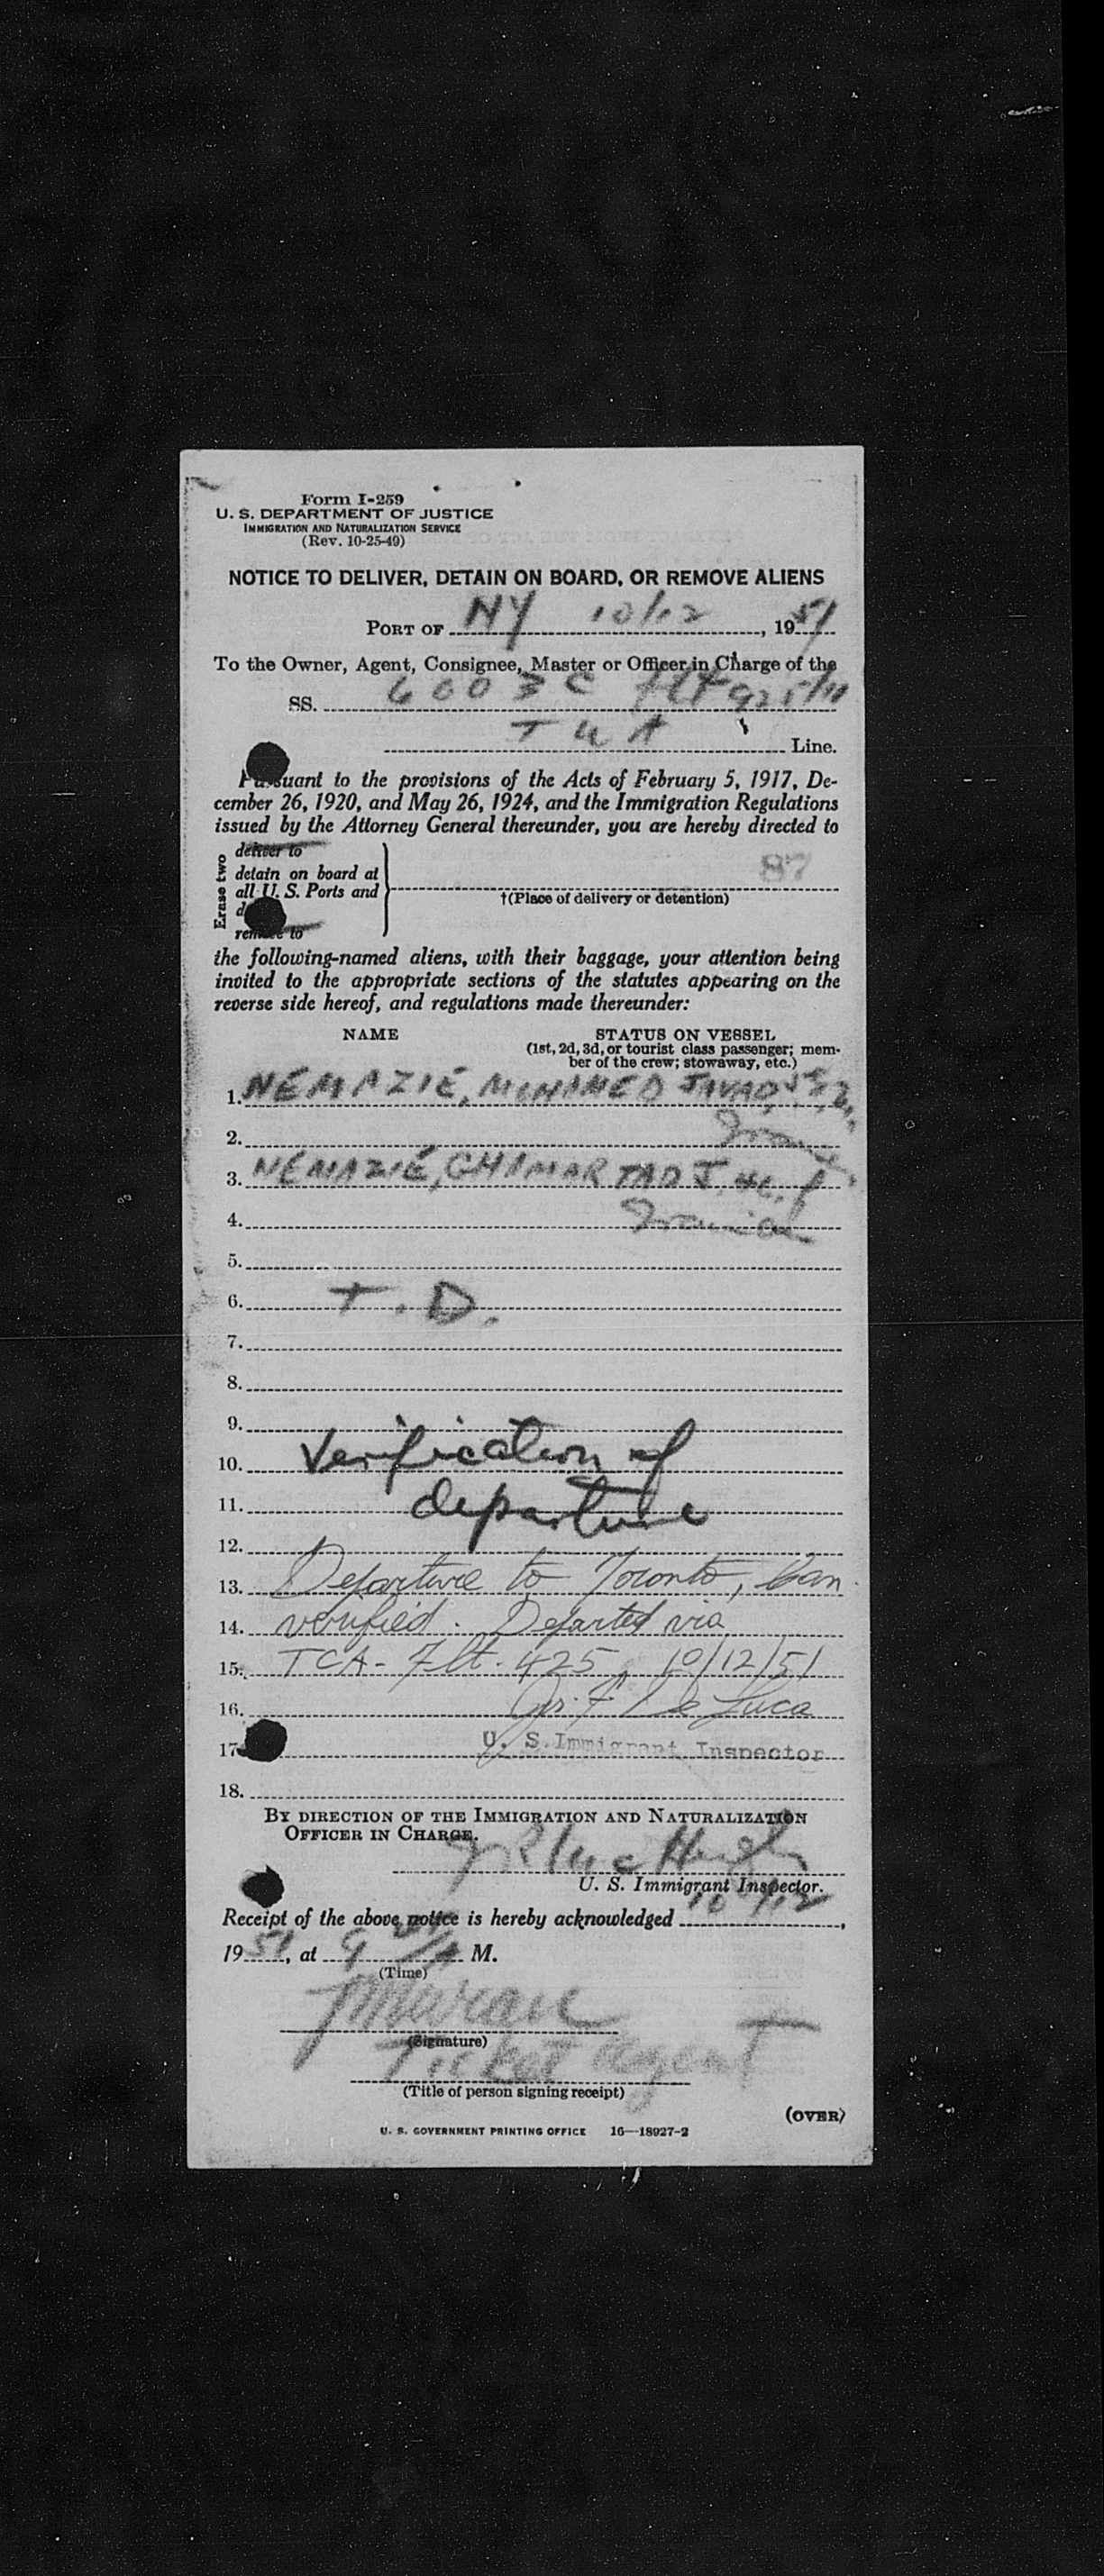 Form I-259
U. S. DEPARTMENT OF JUSTICE
IMMIGRATION AND NATURALIZATION SERVICE
(Rev. 10-25-49)
NOTICE TO DELIVER, DETAIN ON BOARD, OR REMOVE ALIENS
PORT OF NY 10/12, 1951
To the Owner, Agent, Consignee, Master or Officer in Charge of the
SS. 6003 C Flt 925/11
TWA Line.
Pursuant to the provisions of the Acts of February 5, 1917, De-
cember 26, 1920, and May 26, 1924, and the Immigration Regulations
issued by the Attorney General thereunder, you are hereby directed to
Erase two
deliver to
detain on board at
all U. S. Ports and
remove to
87
†(Place of delivery or detention)
the following-named aliens, with their baggage, your attention being
invited to the appropriate sections of the statutes appearing on the
reverse side hereof, and regulations made thereunder:
NAME STATUS ON VESSEL
(1st, 2d, 3d, or tourist class passenger; mem-
ber of the crew; stowaway, etc.)
1. NEMAZIE, MOHAMED JAVAD
2.
3. NEMAZIE, GHAMAR TAD J.
4. Iranian
5.
6. T. D.
7.
8.
9.
10. Verification of
11. departure
12.
13. Departure to Toronto, Can.
14. verified. Departed via
15. TCA - Flt. 425, 10/12/51
16. Jos. F. De Luca
17. U. S. Immigrant Inspector
18.
BY DIRECTION OF THE IMMIGRATION AND NATURALIZATION
OFFICER IN CHARGE.
U. S. Immigrant Inspector.
Receipt of the above notice is hereby acknowledged 10/12,
1951, at 9 A M.
(Time)
(Signature)
Ticket Agent
(Title of person signing receipt)
(OVER)
U. S. GOVERNMENT PRINTING OFFICE 16—18927-2